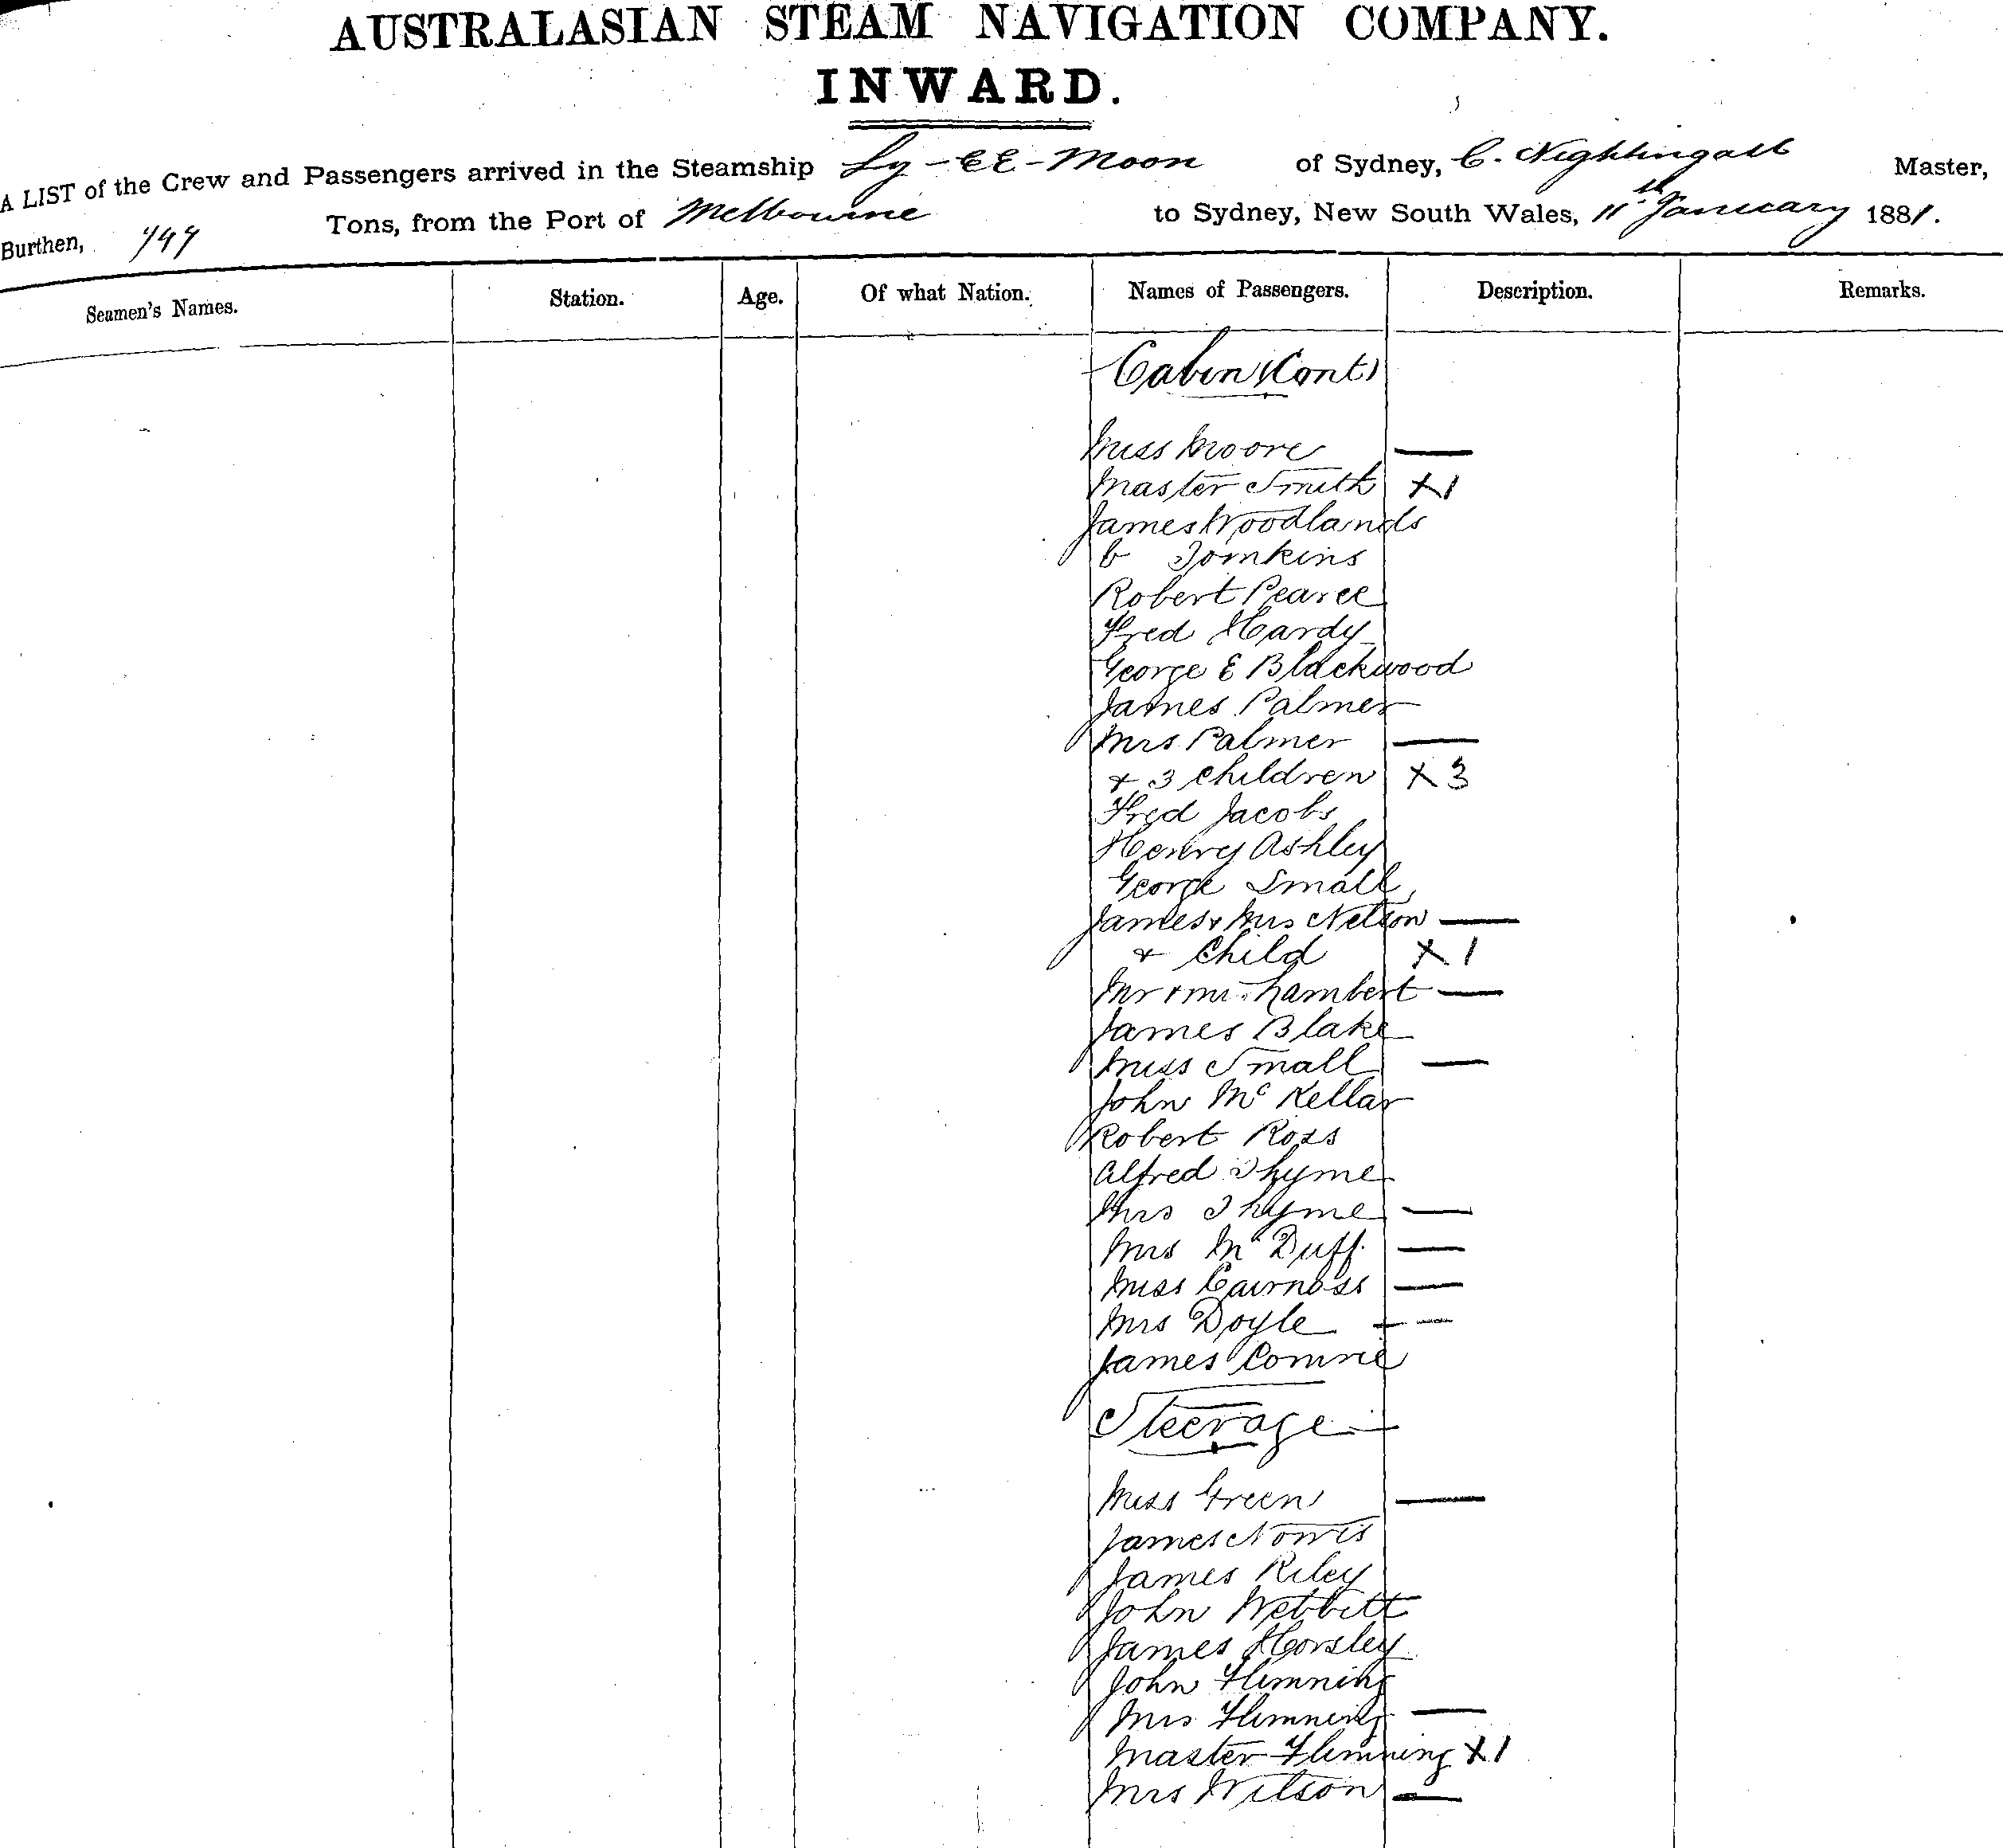 AUSTRALASIAN STEAM NAVIGATION COMPANY.
INWARD.
A LIST of the Crew and Passengers arrived in the Steamship Ly-EE-Moon of Sydney, C. Nightingall Master,
Burthen, Tons, from the Port of Melbourne to Sydney, New South Wales, 11th January 1881.
Seamen's Names. Station. Age. Of what Nation. Names of Passengers. Description. Remarks.
Cabin (Cont)
Miss Moore —
Master Smith X1
James Woodlands
Tomkins
Robert Pearce
Fred Hardy
George E Blackwood
James Palmer
Mrs Palmer —
+ 3 Children X 3
Fred Jacobs
Henry Ashley
George Small
James + Mrs Nelson —
+ Child X 1
Mr + Mrs Lambert —
James Blake
Miss Small —
John Mc Kellar
Robert Ross
Alfred Thyme
Mrs Thyme —
Mrs Mc Duff —
Miss Cairnoss —
Mrs Doyle —
James Comrie
Steerage
Miss Green —
James Norris
James Riley
John Webbitt
James Horsley
John Flimning
Mrs Flimning —
Master Flimning X1
Mrs Wilson —